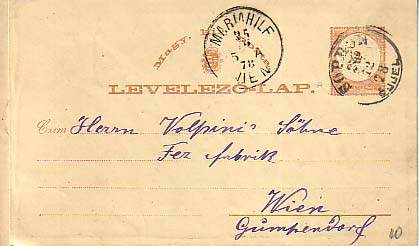 MARIAHILF
25
5
78
WIEN
Magy.
78
LEVELEZŐ-LAP.
Cím Herrn Volpini's Söhne
Fez fabrik
Wien
Gumpendorf
10